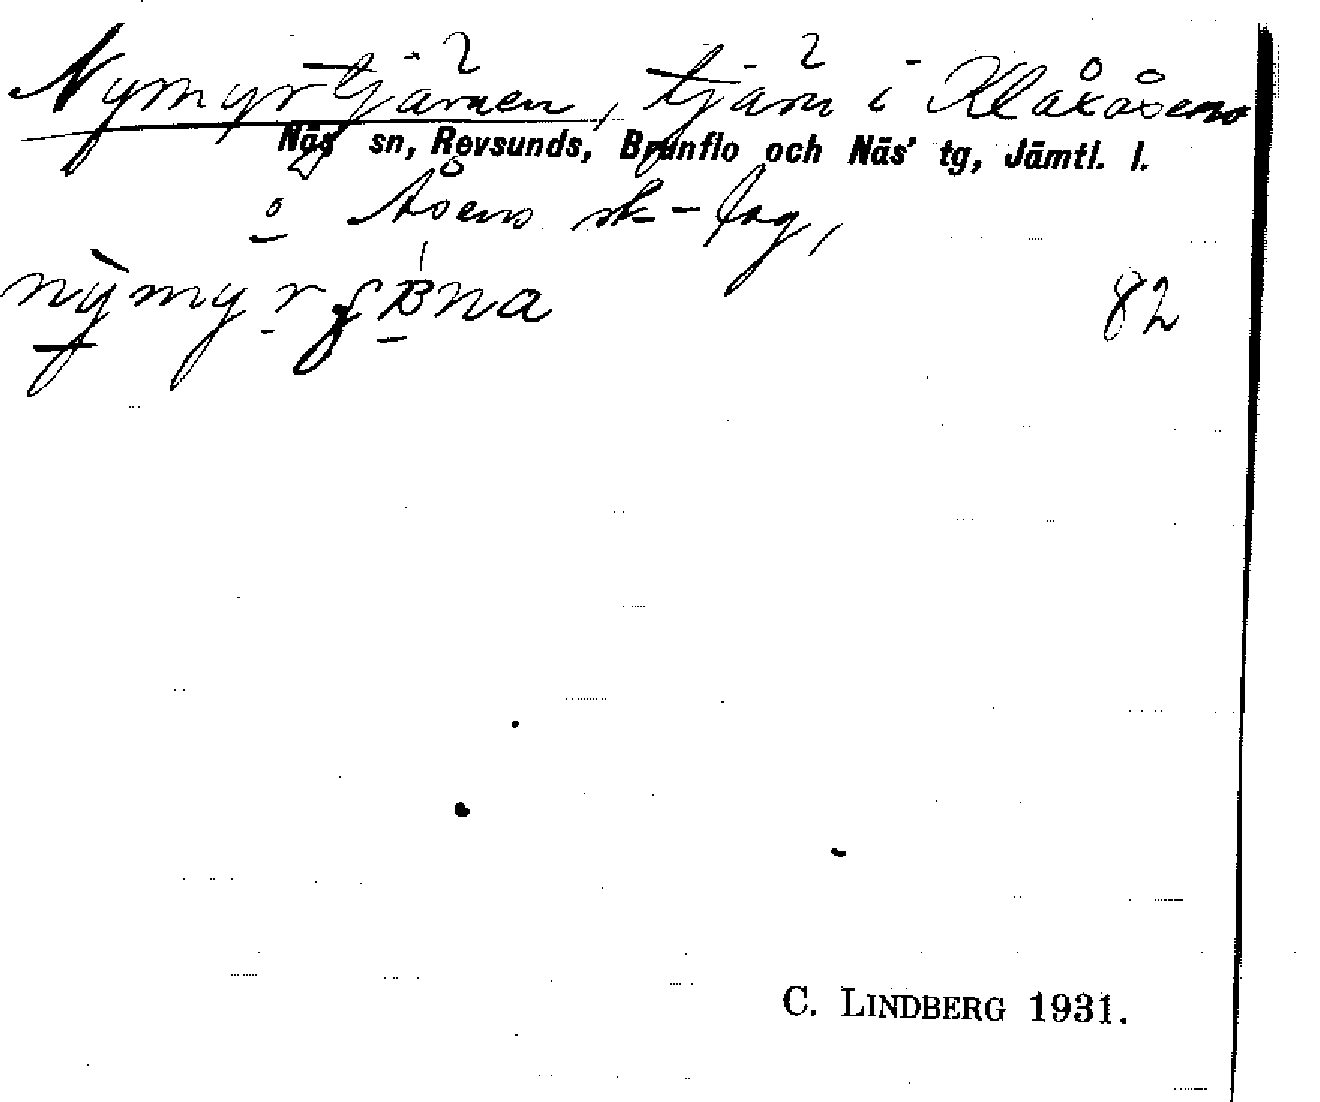 Nymyrtjärnen, tjärn i Klaxåsens
Näs sn, Revsunds, Brunflo och Näs' tg, Jämtl. l.
o Åsens sk-lag,
82
C. LINDBERG 1931.